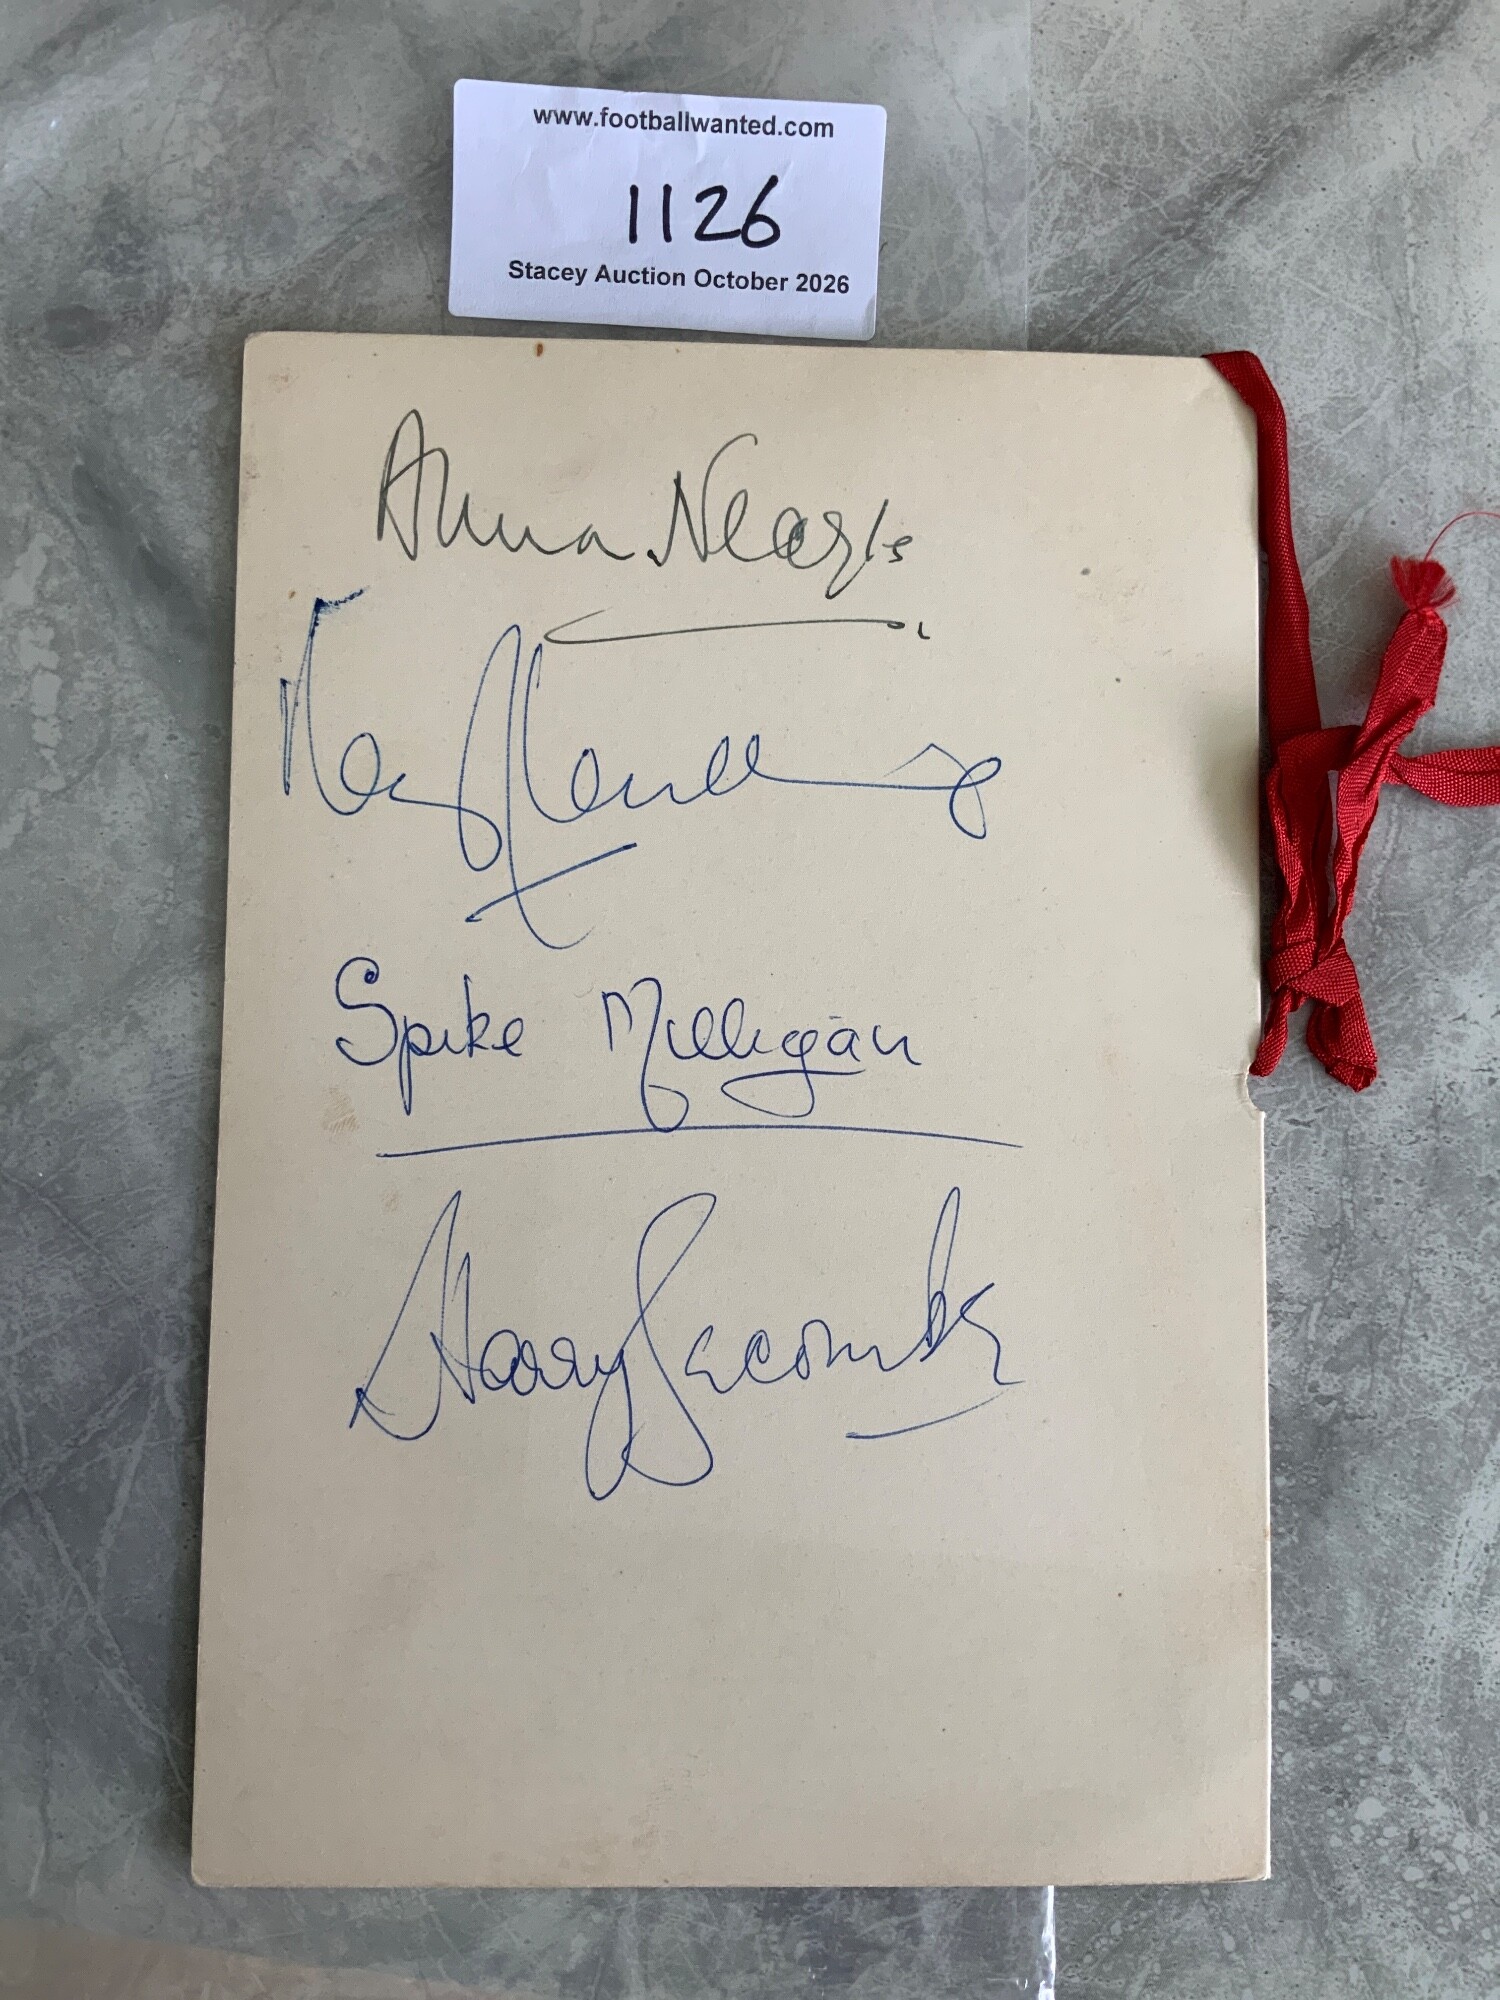 www.footballwanted.com
1126
Stacey Auction October 2026
Anna Neagle
Spike Milligan
Harry Secombe